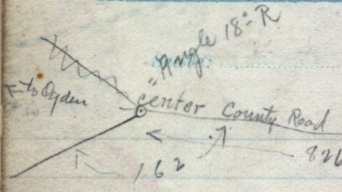 "Angle 18° R
← to Ogden
Center County Road
162
826